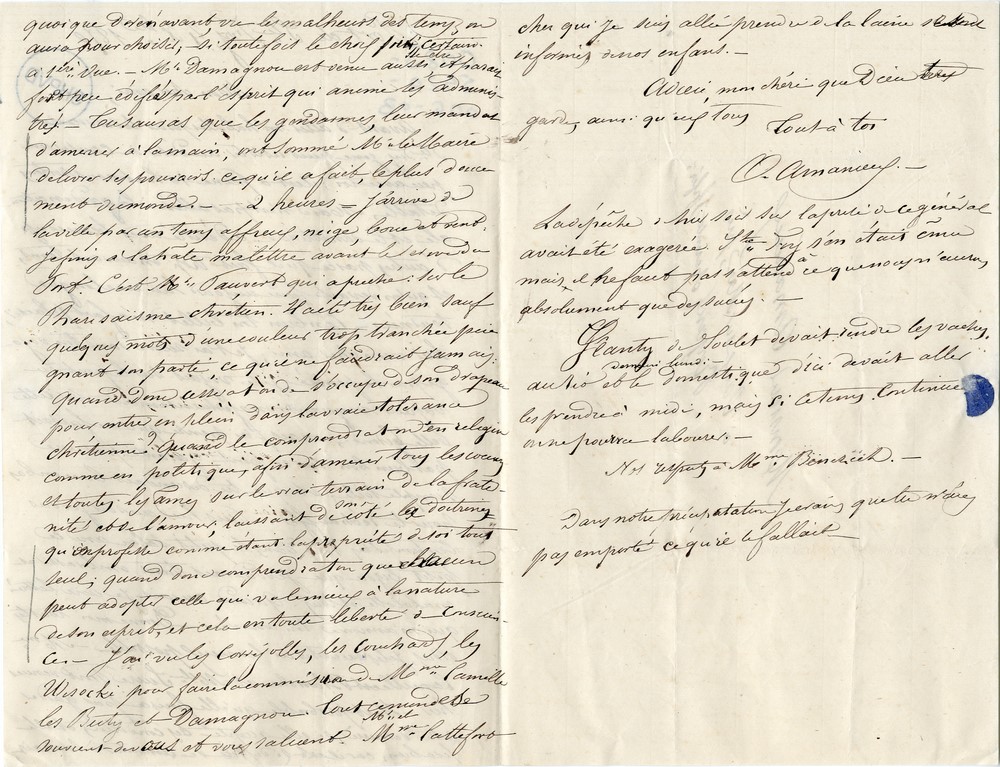 quoique dorénavant vu les malheurs des temps, on
aura pour choisir, si toutefois le choix certain
à 1ère vue. — Mr. Damagnou est venu aussi, et parait
fort peu édifié par l'esprit qui anime les adminis-
trés. — Tu sauras que les gendarmes, leur mandat
d'amener à la main, ont sommé Mr. le Maire
de livrer ses pouvoirs. ce qu'il a fait, le plus douce
ment du monde. — 2 heures = J'arrive de
la ville par un temps affreux, neige boue et vent.
Je finis à la hâte ma lettre avant de
Fort. C'est Mr. Pauvert qui a prêché: sur le
Pharisaisme chrétien. Il a été très bien sauf
quelques mots d'une couleur trop tranchée
quant son parti ce qu'il ne faudrait jamais;
quand donc cessera t on de s'occuper de son drapeau
pour entrer en plein dans la vraie tolérance
chrétienne? Quand le comprendra t on en religion
comme en politique, afin d'amener tous les coeurs
et toutes les âmes sur le vrai terrain de la frater-
nité et de l'amour, laissant de côté les doctrines
qu'on professe comme étant la propriété de soi tout
seul; quand donc comprendra t on que chacun
peut adopter celle qui va le mieux à la nature
de son esprit, et cela en toute liberté de conscien-
ce. — J'ai vu les Correjolles, les Couchads, les
Wisocki pour faire la commission de Mme Camille
les Buty et Damagnou. Tout ce monde se
souvient de vous et vous saluent. Mr. et Mme Cattefort
cher qui je suis allé prendre de la laine se sont
informés de nos enfants. —
Adieu, mon chéri que Dieu te
garde, ainsi qu'eux tous
Tout à toi
O. Amanieux. —
La dépêche d'hier soir sur la perte de ce général
avait été exagérée. Ste Foy s'en était ému
mais, il ne faut pas s'attendre à ce que nous n'aurons
absolument que des succès. —
Jeanty de Soulet devait rendre les vaches
demain lundi —
et le domestique d'ici devait aller
les prendre à midi, mais si ce temps continue
on ne pourra labourer. —
Nos respects à Mme Bénézech. —
Dans notre précipitation je crains que tu n'aies
pas emporté ce qu'il te fallait —